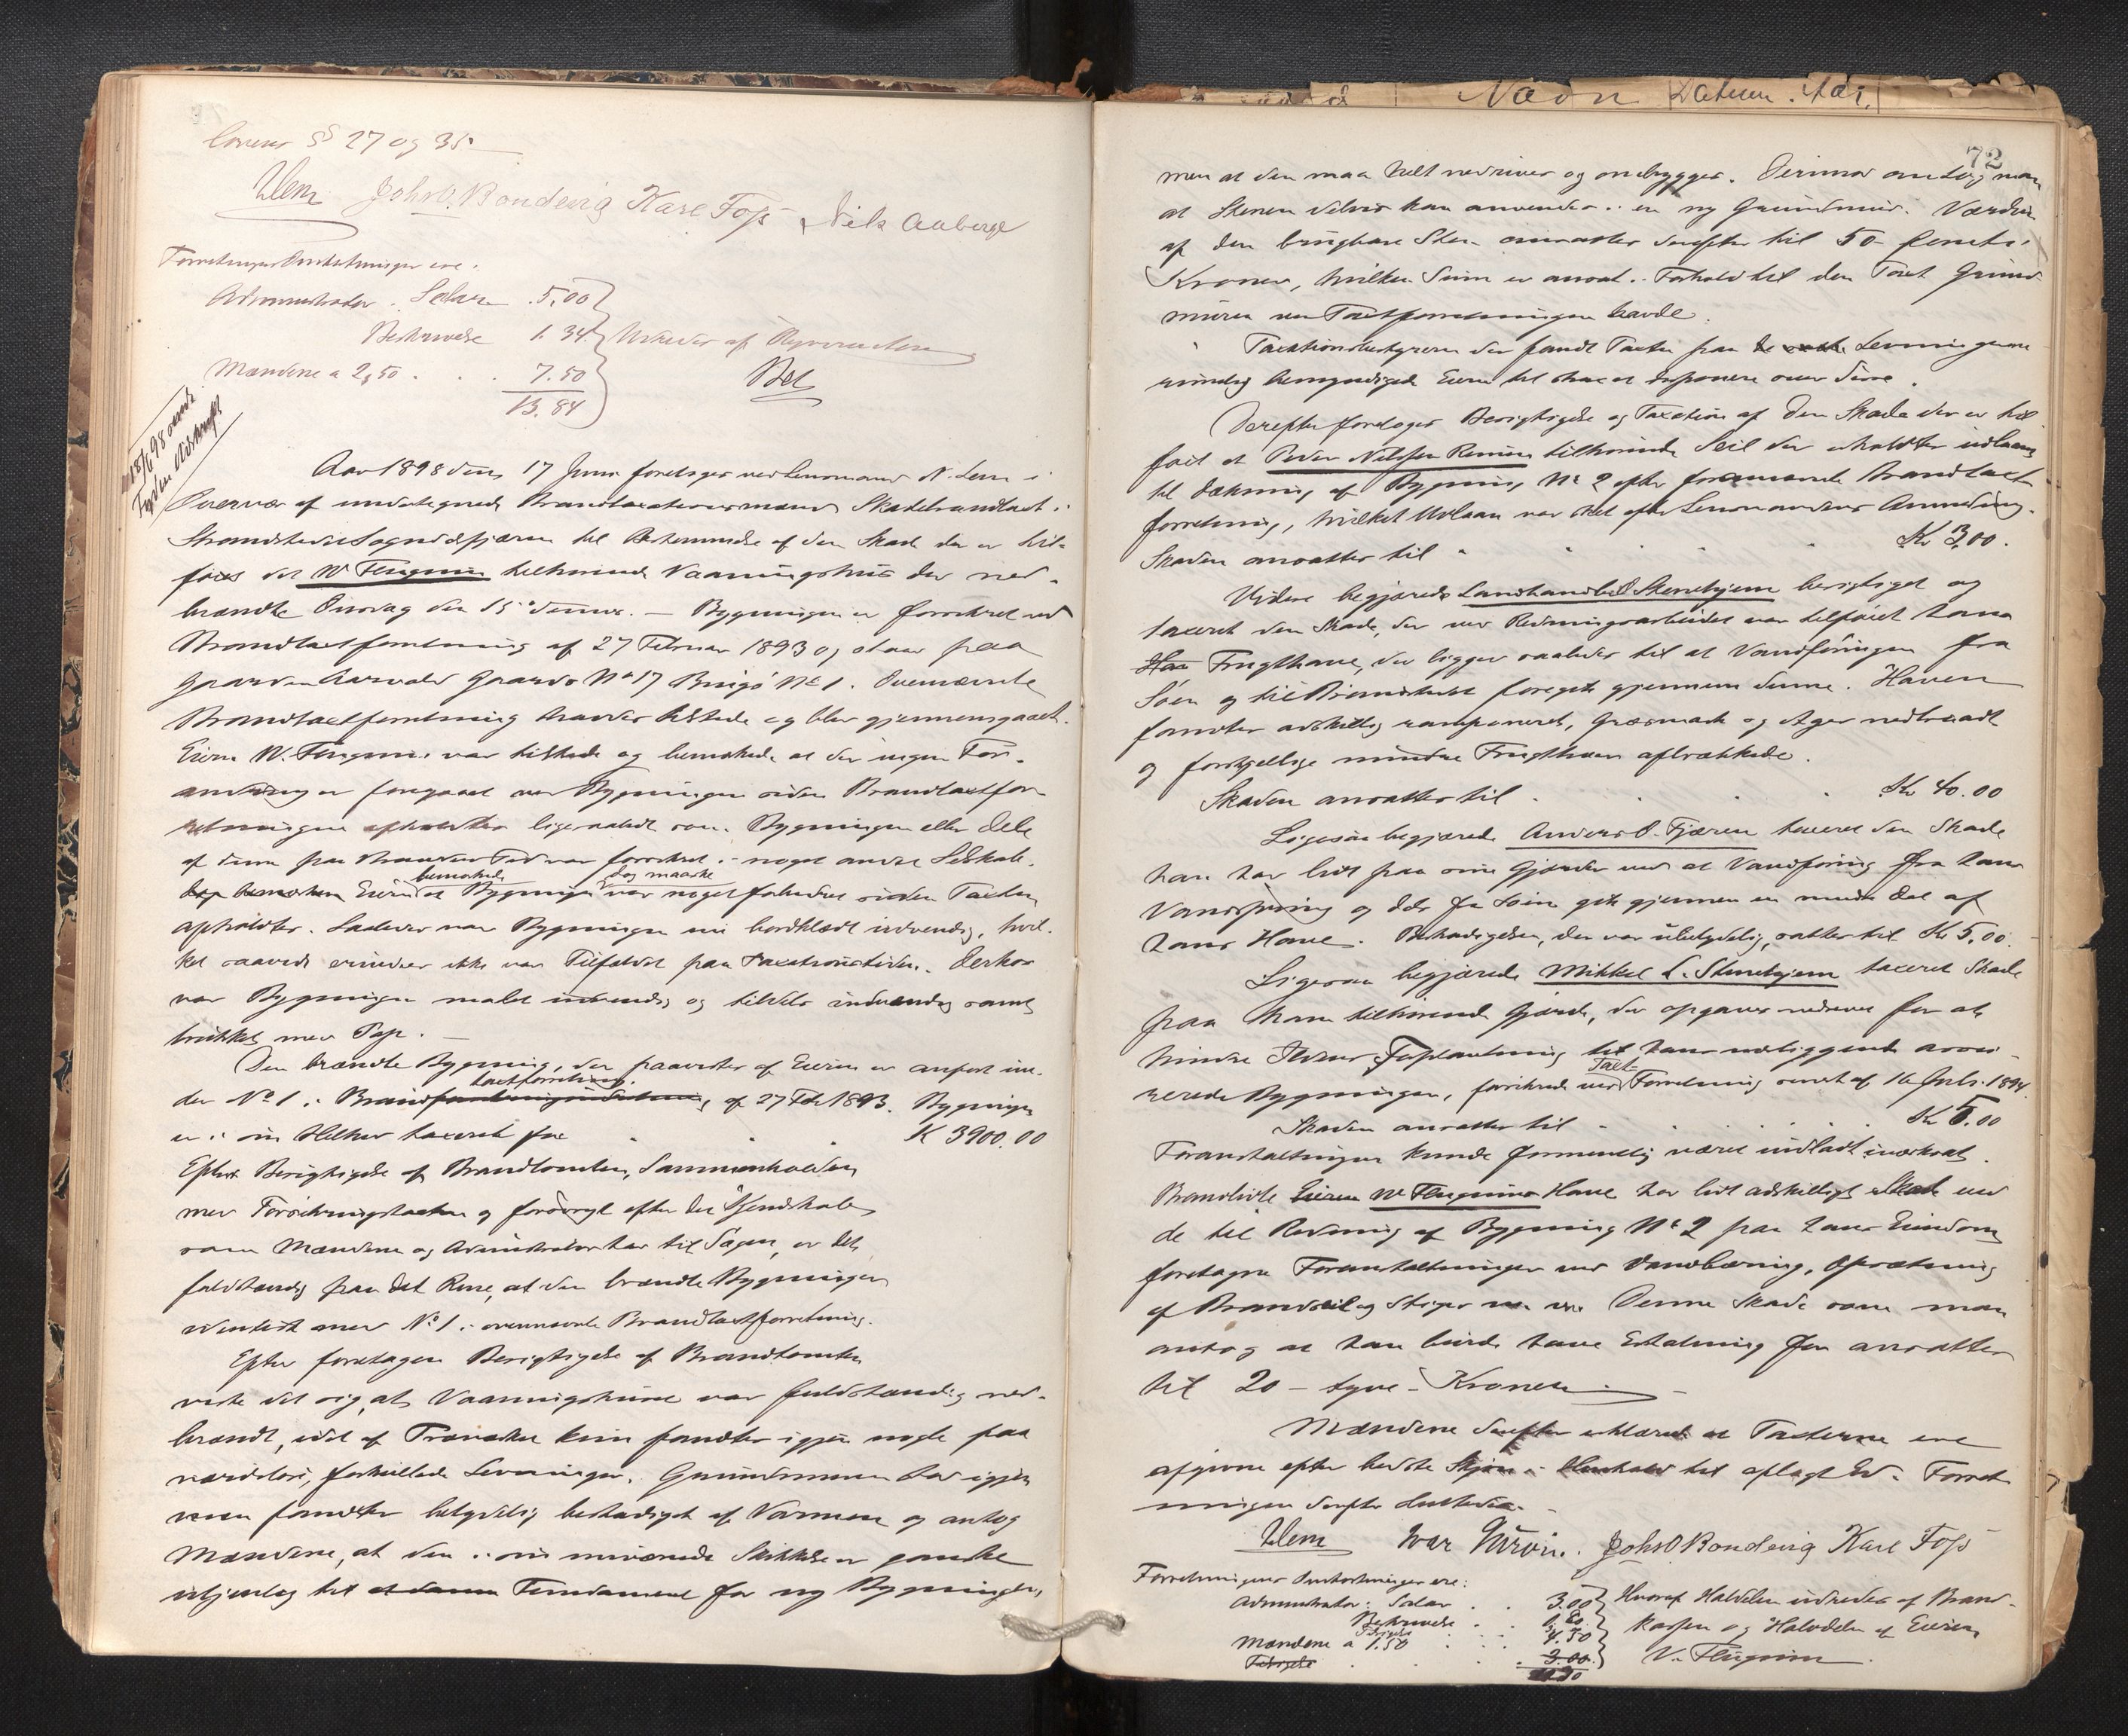 Lovens §§ 27 og 35
NLem Johs O. Bondevig Karl Foss Nils Aaberge
Forretningens Omkostninger ere:
Administrator. Salær 5,00
Beskrivelse 1.34 Udredes af Rekvirenten
Mændene a 2,50 . . . 7.50
13.84
Bet
18/6 98 sendt
Aar 1898 den 17 Juni foretoges ved Lensmand N. Lem i
Overvær af undertegnede Brandtaxationsmænd Skadebrandtaxt i
Strandstedet Sogndalsfjæren til Bestemmelse af den Skade der er til-
føiet det W Flugum tilhørende Vaaningshus der ned-
brændte Onsdag den 15 dennes. — Bygningen er forsikret ved
Brandtaxtforretning af 27 Februar 1893 og staar paa
Gaarden Aarvold Gaards No 17 Brugs No 1. Ovennævnte
Brandtaxtforretning havdes tilstede og blev gjennemgaaet.
Eieren W. Flugum var tilstede og bemærkede at der ingen For-
andring er foregaaet ved Bygningen siden Brandtaxtfor-
retningen afholdtes ligesaalidt som Bygningen eller Dele
af denne paa Branden Tid var forsikret i noget andet Selskab.
bemærkede dog maaske
Eieren at Bygningen var noget forbedret siden Taxten
afholdtes. Saaledes var Bygningen nu bordklædt udvendig, hvil-
ket saavidt erindres ikke var Tilfældet paa Taxationstiden. Derhos
var Bygningen malet udvendig og tildels indvendig samt
trukket med Pap. —
Den brændte Bygning, der paavistes af Eieren er anført un-
taxtforretning
der No 1 i Brandforsikringsindretning af 27 Feb 1893. Bygningen
er i sin Helhed taxeret for . . . K 3900.00
Efter Besigtigelse af Brandtomten, Sammenholden
med Forsikringstaxten og forøvrigt efter det Kjendskab
som Mændene og Administrator har til Sagen, er det
fuldstændig paa det Rene, at den brændte Bygningen
identisk med No 1 i ovennævnte Brandtaxtforretning.
Efter foretagen Besigtigelse af Brandtomten
viste det sig, at Vaaningshuset var fuldstændig ned-
brændt, idet af Træværket kun fandtes igjen nogle faa
værdiløse, forkullede Levninger. Grundmuren lod igjen
men fandtes betydelig beskadiget af Varmen og antog
Mændene, at den i sin nuværende Skikkelse er ganske
utjenlig til at danne Fundament for ny Bygningen,
Navn Datum. Aar.
72
men at den maa helt nedrives og ombygges. Derimod antog man
at Stenen delvis kan anvendes i en ny Grundmur. Værdien
af den brugbare Sten ansattes derefter til 50 femti
Kroner, hvilken Sum er ansat i Forhold til den Taxt Grund-
muren ved Taxtforretningen havde.
Taxtionsbestyreren der fandt Taxten paa Levningerne
rimelig bemyndigede Eieren til strax at disponere over disse.
Derefter foretoges Besigtigelse og Taxation af den Skade der er til-
føiet et Peder Nilssen Remen tilhørende Seil der afholdtes udlaant
til Dækning af Bygning No 2 efter forannævnte Brandtaxt
forretning, hvilket Udlaan var sket efter Lensmandens Anmodning.
Skaden ansattes til . . . . Kr 3,00.
Videre begjærede Landhandler Stenehjem besigtiget og
taxeret den Skade, der ved Redningsarbeidet var tilføiet hans
Hav Frugthave, der ligger saaledes til at Vandføringen fra
Søen og til Brandstedet foregik gjennem denne. Haven
fandtes adskillig ramponeret, Græsmark og Ager nedtraadt
og forskjellige mindre Frugttræer afbrækkede.
Skaden ansattes til . . . . Kr 40.00
Ligesaa begjærede Anders O. Fjæren taxeret den Skade
han har lidt paa sine Gjærder ved at Vandføring fra hans
Vandspring og dels fra Søen gik gjennem en mindre Del af
hans Have. Beskadigelsen, der var ubetydelig, sattes til Kr 5,00.
Ligesaa begjærede Mikkel L. Stenehjem taxeret Skade
paa ham tilhørende Gjærde, der opgaves nedrevet for at
hindre Ildens Forplantning til hans nedliggende assu-
Taxt-
rerede Bygninger, forsikrede ved Forretning senest af 16 Juli 1894.
Skaden ansattes til . . . . Kr 5.00
Foranstaltningen kunde formentlig været undladt iværksat.
Brandlidte Eieren W Flugums Have har lidt adskilligt Skade ved
de til Redning af Bygning No 2 paa hans Eiendom
foretagne Foranstaltninger ved Vandbæring, Opsætning
af Brandseil og Stiger m. m. Denne Skade som man
antog at han burde have Erstatning for ansattes
til 20 - tyve - Kroner. —
Mændene derefter erklærede at Taxterne ere
afgivne efter bedste Skjøn i Henhold til aflagt Ed. Forret-
ningen derefter sluttedes. —
NLem Ivar Johs O Bondevig Karl Foss
Forretningens Omkostninger ere:
Administrator: Salær . . 3.00 Hvoraf Halvdelen udredes af Brand-
Beskrivelse . . 1.80 kassen og Halvdelen af Eieren
Mændene a 1.50 . . . 4.50 W. Flugum
3.00